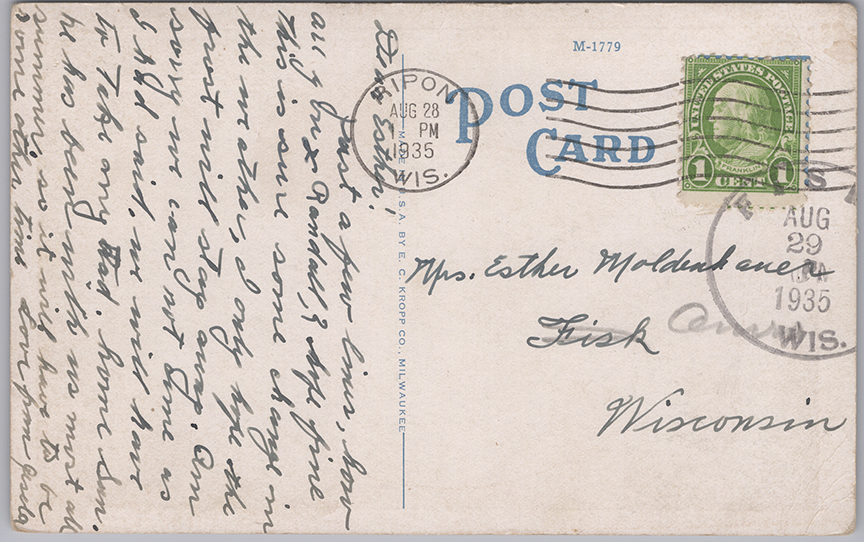 Dear Esther;
Just a few lines, how
all of you & Randall, I hope fine
this is sure some change in
the weather, I only hope the
frust will stay away. Am
sorry we can not come as
I had said, we will have
to take my Dad. home Sun.
he has been with us most all
summer, so it will have to be
some other time Love from
M-1779
POST
CARD
MADE U.S.A. BY E. C. KROPP CO., MILWAUKEE
RIPON
AUG 28
PM
1935
WIS.
UNITED STATES POSTAGE
FRANKLIN
1 CENTS 1
AUG
29
1935
WIS.
Mrs. Esther Moldenhauer
Fisk
Wisconsin